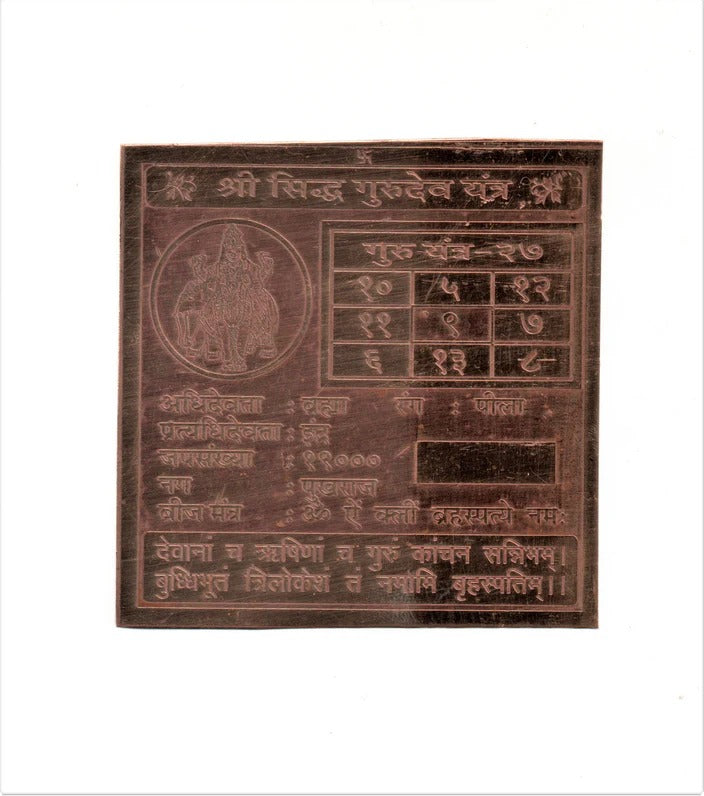 श्री सिद्ध गुरुदेव यंत्र
गुरु यंत्र-२७
१० ५ १२
११ ९ ७
६ १३ ८
अधिदेवता : ब्रह्मा रंग : पीला
प्रत्यधिदेवता : इंद्र
जपसंख्या : १९०००
नग : पुखराज
बीज मंत्र : ॐ ऐं क्लीं ब्रहस्पत्ये नमः
देवानां च ऋषिणां च गुरुं कांचन सन्निभम्।
बुध्धिभूतं त्रिलोकेशं तं नमामि बृहस्पतिम्।।